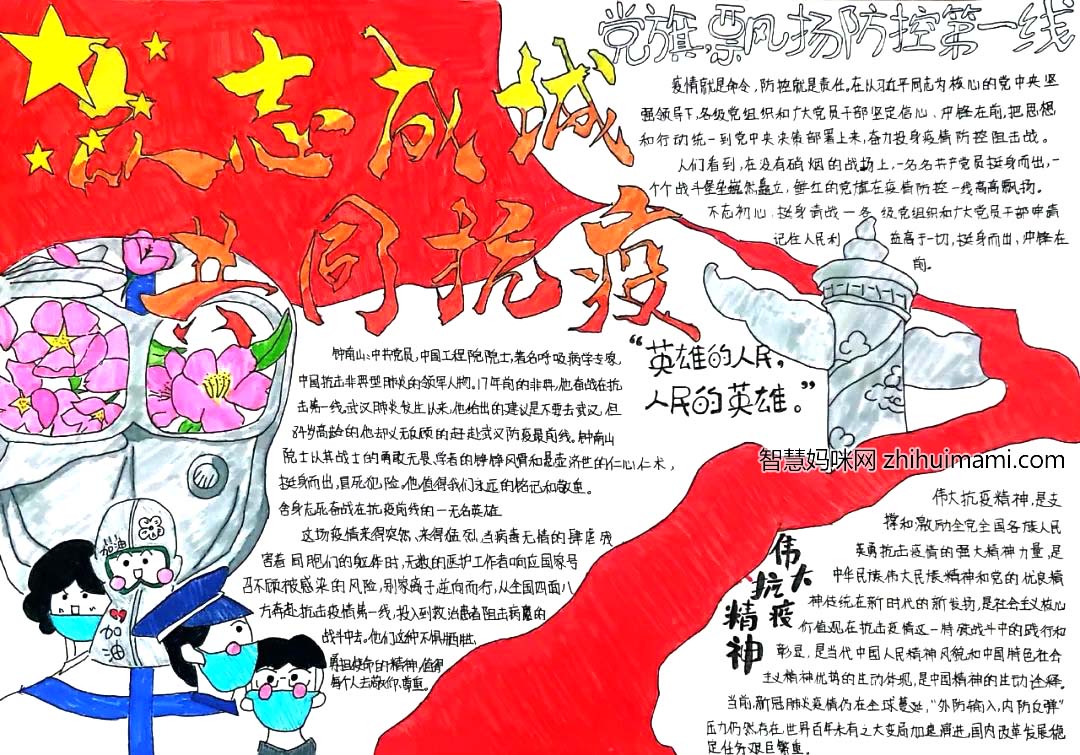 众志成城
共同抗疫
党旗,飘扬防控第一线
疫情就是命令,防控就是责任。在以习近平同志为核心的党中央坚
强领导下,各级党组织和广大党员干部坚定信心、冲锋在前,把思想
和行动统一到党中央决策部署上来,奋力投身疫情防控阻击战。
人们看到,在没有硝烟的战场上,一名名共产党员挺身而出,一
个个战斗堡垒巍然矗立,鲜红的党旗在疫情防控一线高高飘扬。
不忘初心,挺身奋战一各级党组织和广大党员干部
记住人民利益高于一切,挺身而出,冲锋在
前。
钟南山、中共党员,中国工程院院士,著名呼吸病学专家,
中国抗击非典型肺炎的领军人物。17年前的非典,他奋战在抗
击第一线。武汉肺炎发生以来,他给出的建议是不要去武汉,但
84岁高龄的他却义无反顾的赶赴武汉防疫最前线。钟南山
院士以其战士的勇敢无畏,学者的铮铮风骨和悬壶济世的仁心仁术,
挺身而出,冒死犯险。他值得我们永远的铭记和敬重。
舍身忘死奋战在抗疫前线的一无名英雄
这场疫情来得突然、来得猛烈,当病毒无情的肆虐残
害着同胞们的躯体时,无数的医护工作者响应国家号
召不顾被感染的风险,别家离子逆向而行,从全国四面八
方奔赴抗击疫情第一线,投入到救治患者阻击病魔的
战斗中去。他们这种不惧牺牲,
使命的精神,值得
每个人去敬仰、尊重。
“英雄的人民,
人民的英雄。”
智慧妈咪网 zhihuimami.com
伟大
抗疫
精神
伟大抗疫精神,是支
撑和激励全党全国各族人民
英勇抗击疫情的强大精神力量,是
中华民族伟大民族精神和党的优良精
神传统在新时代的新发扬,是社会主义核心
价值观在抗击疫情这一特殊战斗中的践行和
彰显,是当代中国人民精神风貌和中国特色社会
主义精神优势的生动体现,是中国精神的生动诠释。
当前,新冠肺炎疫情仍在全球蔓延,“外防输入,内防反弹”
压力仍然存在,世界百年未有之大变局加速演进,国内改革发展稳
定任务艰巨繁重。
加油
加
油